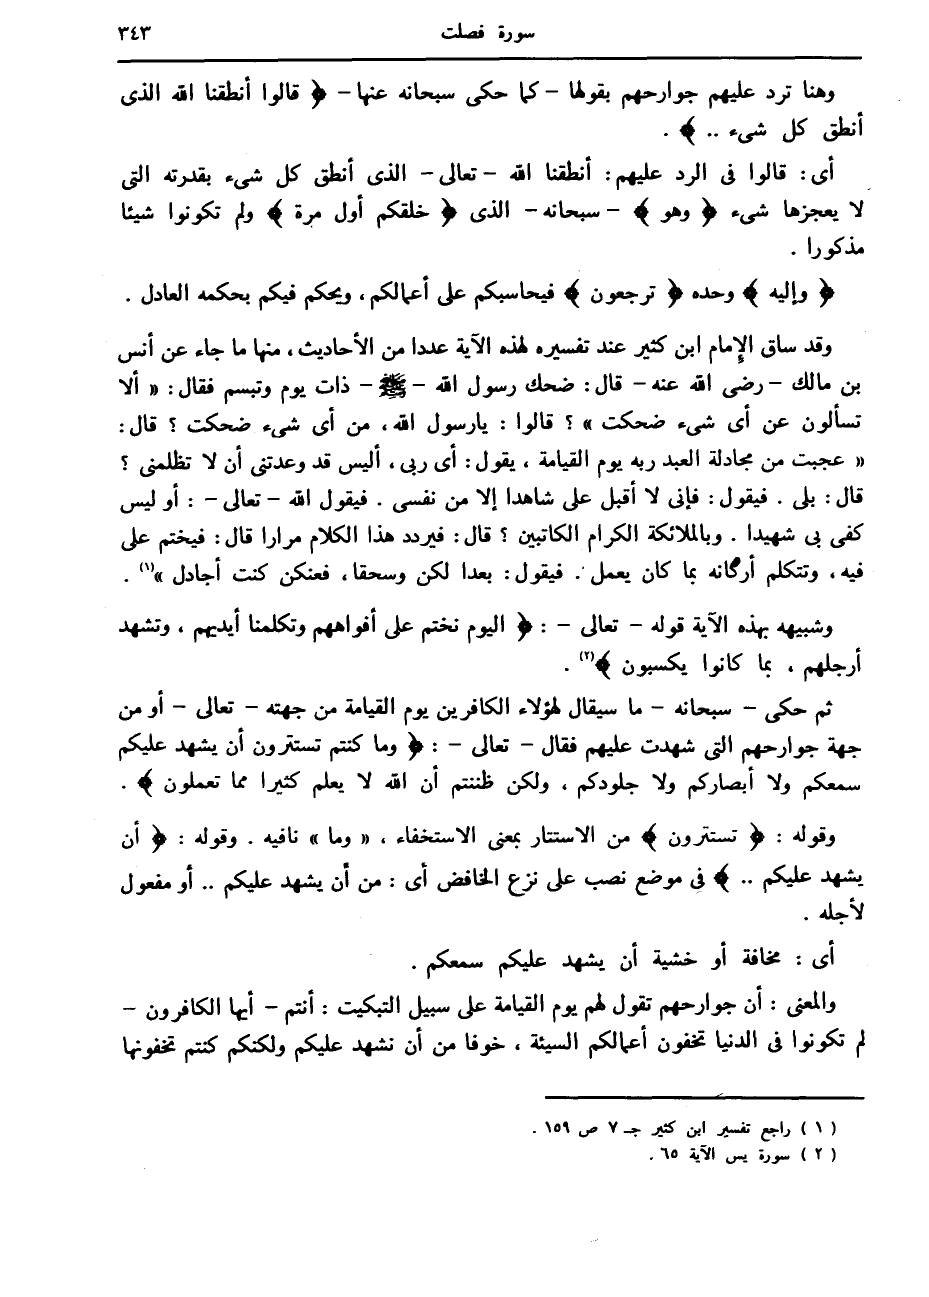 سورة فصلت ٣٤٣
وهنا ترد عليهم جوارحهم بقولها – كما حكى سبحانه عنها – ﴿ قالوا أنطقنا الله الذى
أنطق كل شىء .. ﴾ .
أى : قالوا فى الرد عليهم : أنطقنا الله – تعالى – الذى أنطق كل شىء بقدرته التى
لا يعجزها شىء ﴿ وهو ﴾ – سبحانه – الذى ﴿ خلقكم أول مرة ﴾ ولم تكونوا شيئا
مذكورا .
﴿ وإليه ﴾ وحده ﴿ ترجعون ﴾ فيحاسبكم على أعمالكم ، ويحكم فيكم بحكمه العادل .
وقد ساق الإمام ابن كثير عند تفسيره لهذه الآية عددا من الأحاديث ، منها ما جاء عن أنس
بن مالك – رضى الله عنه – قال : ضحك رسول الله – ﷺ – ذات يوم وتبسم فقال : « ألا
تسألون عن أى شىء ضحكت » ؟ قالوا : يارسول الله ، من أى شىء ضحكت ؟ قال :
« عجبت من مجادلة العبد ربه يوم القيامة ، يقول : أى ربى ، أليس قد وعدتنى أن لا تظلمنى ؟
قال : بلى . فيقول : فإنى لا أقبل على شاهدا إلا من نفسى . فيقول الله – تعالى – : أو ليس
كفى بى شهيدا . وبالملائكة الكرام الكاتبين ؟ قال : فيردد هذا الكلام مرارا قال : فيختم على
فيه ، وتتكلم أركانه بما كان يعمل . فيقول : بعدا لكن وسحقا ، فعنكن كنت أجادل »(١) .
وشبيهه بهذه الآية قوله – تعالى – : ﴿ اليوم نختم على أفواههم وتكلمنا أيديهم ، وتشهد
أرجلهم ، بما كانوا يكسبون ﴾(٢) .
ثم حكى – سبحانه – ما سيقال لهؤلاء الكافرين يوم القيامة من جهته – تعالى – أو من
جهة جوارحهم التى شهدت عليهم فقال – تعالى – : ﴿ وما كنتم تستترون أن يشهد عليكم
سمعكم ولا أبصاركم ولا جلودكم ، ولكن ظننتم أن الله لا يعلم كثيرا مما تعملون ﴾ .
وقوله : ﴿ تستترون ﴾ من الاستتار بمعنى الاستخفاء ، « وما » نافيه . وقوله : ﴿ أن
يشهد عليكم .. ﴾ فى موضع نصب على نزع الخافض أى : من أن يشهد عليكم .. أو مفعول
لأجله .
أى : مخافة أو خشية أن يشهد عليكم سمعكم .
والمعنى : أن جوارحهم تقول لهم يوم القيامة على سبيل التبكيت : أنتم – أيها الكافرون –
لم تكونوا فى الدنيا تخفون أعمالكم السيئة ، خوفا من أن نشهد عليكم ولكنكم كنتم تخفونها
( ١ ) راجع تفسير ابن كثير جـ ٧ ص ١٥٩ .
( ٢ ) سورة يس الآية ٦٥ .